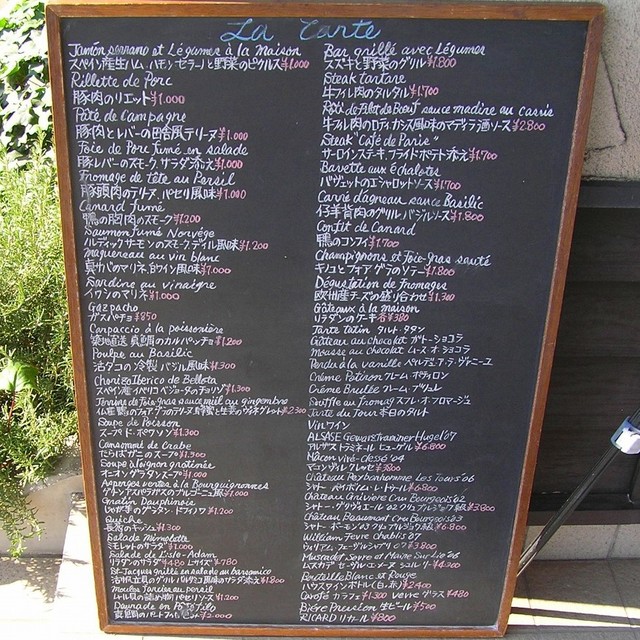 La Carte
Jamón serrano et Légumes à la Maison
スペイン産生ハム、ハモン・セラーノと野菜のピクルス ¥1.000
Rillette de Porc
豚肉のリエット ¥1.000
Pâté de Campagne
豚肉とレバーの田舎風テリーヌ ¥1.000
Foie de Porc fumé en salade
豚レバーのスモーク、サラダ添え ¥1.000
Fromage de tête au Persil
豚頭肉のテリーヌ、パセリ風味 ¥1.000
Canard fumé
鴨の胸肉のスモーク ¥1.200
Saumon fumé Norvège
ノルディックサーモンのスモークディル風味 ¥1.200
Maquereau au vin blanc
真サバのマリネ、白ワイン風味 ¥1.000
Sardine au vinaigre
イワシのマリネ ¥1.000
Gazpacho
ガスパチョ ¥850
Carpaccio à la poissonière
築地直送 真鯛のカルパッチョ ¥1.200
Poulpe au Basilic
活タコの冷製 バジル風味 ¥1.300
Chorizo Iberico de Bellota
スペイン産イベリコベジョータのチョリソ ¥1.300
Terrine de Foie-gras sauce miel au gingembre
Soupe de Poisson
スープ・ド・ポワソン ¥1.300
Consommé de Crabe
たらばガニのスープ ¥1.300
Soupe à l'oignon gratinée
オニオングラタンスープ ¥1.000
Asperges vertes à la Bourguignonnes
グリーンアスパラガスのブルゴーニュ風 ¥1.000
Gratin Dauphinois
じゃが芋のグラタン・ドフィノワ ¥1.200
Quiche
¥1.300
Salade Mimolette
ミモレットのサラダ ¥1.000
Salade de L'air Adam
リラダンのサラダ ¥480 Lサイズ ¥780
St-Jacques grillé en salade au basssonico
¥1.800
Moules farcies au persil
¥1.200
Daurade en Pastfilo
¥2.000
Bar grillé avec Légumes
スズキと野菜のグリル ¥1.800
Steak tartare
牛フィレ肉のタルタル ¥1.700
Rôti de Filet de Boeuf sauce madère au cassis
牛フィレ肉のロティ、カシス風味のマディラ酒ソース ¥2.800
Steak "Café de Paris"
サーロインステーキ、フライドポテト添え ¥1.700
Bavette aux échalotes
バヴェットのエシャロットソース ¥1.700
Carré d'agneau sauce Basilic
仔羊背肉のグリル バジルソース ¥1.800
Confit de Canard
鴨のコンフィ ¥1.700
Champignons et Foie-gras sauté
キノコとフォアグラのソテー ¥1.800
Dégustation de Fromages
欧州産チーズの盛り合わせ ¥1.300
Gâteaux à la maison
リラダンのケーキ 各¥380
Tarte tatin タルト・タタン
Gâteau au chocolat ガトーショコラ
Mousse au chocolat ムース・オ・ショコラ
Crème Potiron クレーム・ポティロン
Crème Brûlée クレーム・ブリュレ
Souffle au fromag スフレ・オ・フロマージュ
Tarte du Jour 本日のタルト
Vin ワイン
ALSACE Gewurztraminer Hugel '07
アルザス トラミネール ヒューゲル ¥6.800
Mâcon viré-clessé '04
マコン・ヴィレ クレッセ ¥3.800
Château Reybonhomme Les Tours '06
¥6.800
Château Grivière Cru Bourgeois '02
¥3.800
Château Beaumont Cru Bourgeois '03
¥6.800
William Fevre Chablis '07
¥3.800
Muscadet Sevre et Maine sur lie '06
¥4.200
Bouteille Blanc et Rouge
ハウスワインボトル(白・赤) ¥2.400
Carafe カラフェ ¥1.300 Verre グラス ¥480
Bière Pression 生ビール ¥500
RICARD リカール ¥800